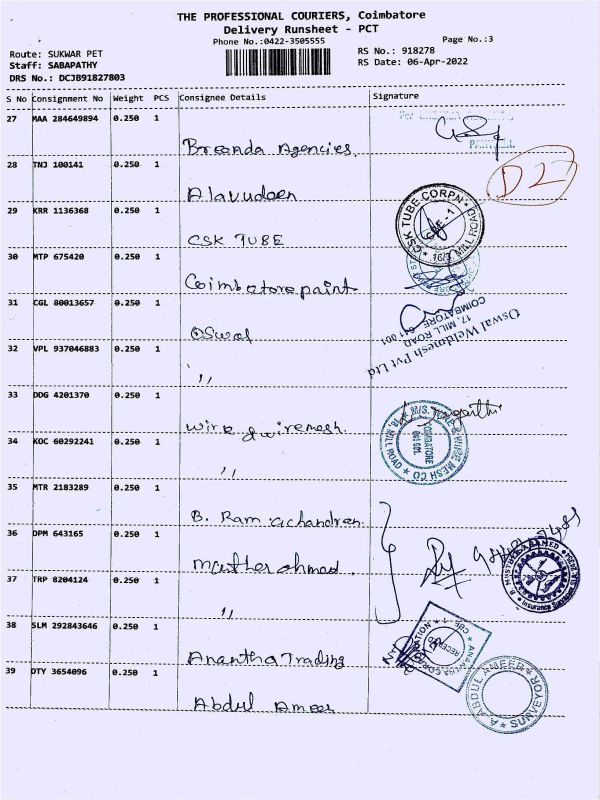 THE PROFESSIONAL COURIERS, Coimbatore
Delivery Runsheet - PCT
Phone No.:0422-3505555
Page No.:3
Route: SUKWAR PET
Staff: SABAPATHY
DRS No.: DCJB91827803
RS No.: 918278
RS Date: 06-Apr-2022
S No Consignment No Weight PCS Consignee Details Signature
27 MAA 284649894 0.250 1
Agencies
28 TNJ 100141 0.250 1
Alavudeen
D27
29 KRR 1136368 0.250 1
CSK TUBE
CSK TUBE CORPN
CBE - 1
MILL ROAD
30 MTP 675420 0.250 1
Coimbatore paint
31 CGL 80013657 0.250 1
Oswal
Oswal Weldmesh Pvt Ltd
17, MILL ROAD
COIMBATORE
32 VPL 937046883 0.250 1
,,
33 DDG 4201370 0.250 1
Wire & wiremesh
34 KOC 60292241 0.250 1
,,
COIMBATORE
MILL ROAD
MESH CO
35 MTR 2183289 0.250 1
B. Ramachandren
36 DPM 643165 0.250 1
37 TRP 8204124 0.250 1
,,
38 SLM 292843646 0.250 1
Anantha Trading
39 DTY 3654096 0.250 1
Abdul Ameer
A. ABDUL AMEER
SURVEYOR